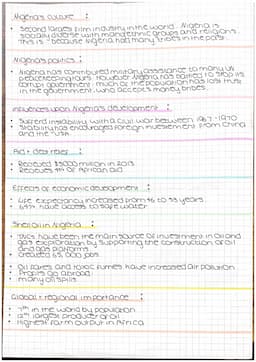 Nigeria's culture :
• Second largest film industry in the world. Nigeria is
socially diverse with many ethnic groups and religions.
This is because Nigeria had many tribes in the past.
Nigeria's politics :
• Nigeria has contributed military assistance to many UN
peacekeeping roles. However Nigeria has battled to stop its
corrupt government. much of the population has lost trust
in the government, who accepts money bribes.
influences upon Nigeria's development :
• Suffered instability with a civil war between 1967-1970
• Stability has encouraged foreign investment from China
and the USA
Aid + debt relief :
• Received $5000 million in 2013
• Receives 4% of African aid
Effects of economic development :
• Life expectancy increased from 46 to 53 years
• 64% have access to safe water
Shell oil in Nigeria :
• TNCs have been the main source of investment in oil and
gas exploration by supporting the construction of oil
and gas platforms
• created 65,000 jobs
• Oil flares and toxic fumes have increased air pollution
• Profits go abroad
• many oil spills
Global + regional importance :
• 7th in the world by population
• 12th largest producer of oil
• Highest farm output in Africa